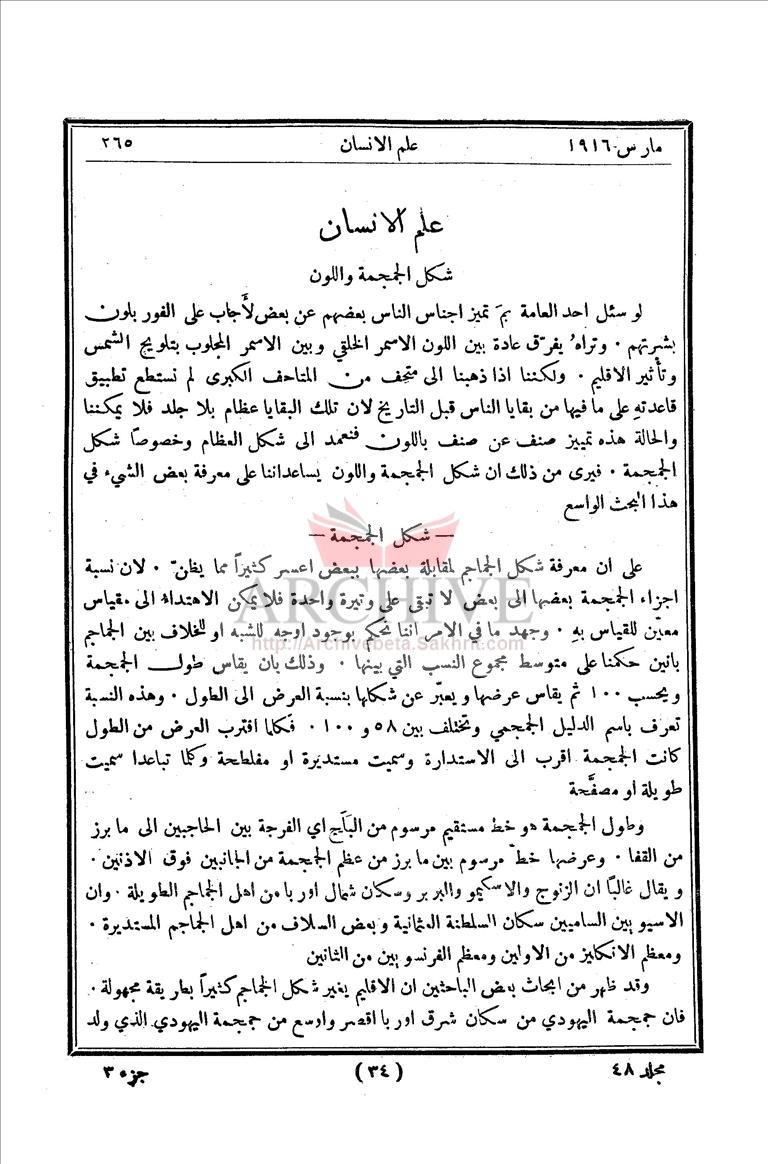 مارس ١٩١٦ علم الانسان ٢٦٥
علم الانسان
شكل الجمجمة واللون
لو سئل احد العامة بمَ تميز اجناس الناس بعضهم عن بعض لأَجاب على الفور بلون
بشرتهم . وتراهُ يفرّق عادة بين اللون الاسمر الخلقي وبين الاسمر المجلوب بتلويح الشمس
وتأثير الاقليم . ولكننا اذا ذهبنا الى متحف من المتاحف الكبرى لم نستطع تطبيق
قاعدتهِ على ما فيها من بقايا الناس قبل التاريخ لان تلك البقايا عظام بلا جلد فلا يمكننا
والحالة هذه تمييز صنف عن صنف باللون فنعمد الى شكل العظام وخصوصاً شكل
الجمجمة . فيرى من ذلك ان شكل الجمجمة واللون يساعداننا على معرفة بعض الشيء في
هذا البحث الواسع
— شكل الجمجمة —
على ان معرفة شكل الجماجم لمقابلة بعضها ببعض اعسر كثيراً مما يظنّ . لان نسبة
اجزاء الجمجمة بعضها الى بعض لا تبقى على وتيرة واحدة فلا يمكن الاهتداء الى مقياس
معيّن للقياس بهِ . وجهد ما في الامر اننا نحكم بوجود اوجه للشبه او للخلاف بين الجماجم
بانين حكمنا على متوسط مجموع النسب التي بينها . وذلك بان يقاس طول الجمجمة
ويحسب ١٠٠ ثم يقاس عرضها ويعبّر عن شكلها بنسبة العرض الى الطول . وهذه النسبة
تعرف باسم الدليل الجمجمي وتختلف بين ٥٨ و ١٠٠ . فكلما اقترب العرض من الطول
كانت الجمجمة اقرب الى الاستدارة وسميت مستديرة او مفلطحة وكلما تباعدا سميت
طويلة او مصفَّحة
وطول الجمجمة هو خط مستقيم مرسوم من البَلَج اي الفرجة بين الحاجبين الى ما برز
من القفا . وعرضها خطّ مرسوم بين ما برز من عظم الجمجمة من الجانبين فوق الاذنين .
ويقال غالباً ان الزنوج والاسكيمو والبربر وسكان شمال اوربا من اهل الجماجم الطويلة . وان
الاسيويين الساميين سكان السلطنة العثمانية وبعض السلاف من اهل الجماجم المستديرة .
ومعظم الانكليز من الاولين ومعظم الفرنسويين من الثانين
وقد ظهر من ابحاث بعض الباحثين ان الاقليم يغير شكل الجماجم كثيراً بطريقة مجهولة .
فان جمجمة اليهودي من سكان شرق اوربا اقصر واوسع من جمجمة اليهودي الذي ولد
مجلد ٤٨ (٣٤) جزء ٣
ARCHIVE
http://Archivebeta.Sakhrit.com